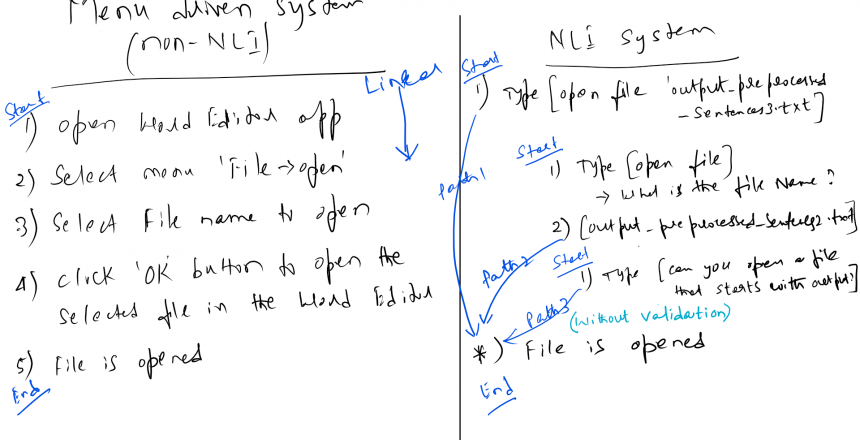 Menu driven system
(non-NLI)
Linear
Start
1) Open Word Editor app
2) Select menu 'File → open'
3) Select File name to open
4) click 'OK' button to open the
selected file in the Word Editor
5) File is opened
End
NLI System
Start
1) Type [open file 'output_preprocessed
_sentences3.txt]
Path1
Start
1) Type [open file]
→ What is the file Name?
2) [output_preprocessed_sentences2.txt]
Path2
Start
1) Type [can you open a file
that starts with output?]
Path3
(Without validation)
*) File is opened
End